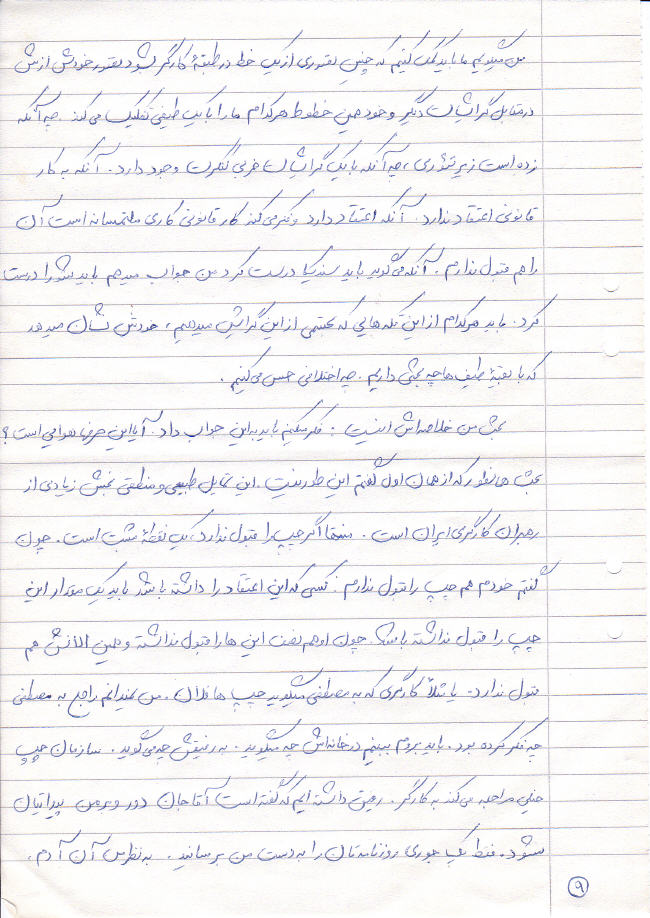 من میگویم ما باید کمک کنیم که چنین تصوری از یک خط در طبقهٔ کارگر بشود تصور خودش ازش
در مقابل گرایشات دیگر وجود همین خطوط هر کدام ما را با یک طیفی تفکیک می‌کند. چه آنکه
زده است زیر تئوری، چه آنکه با یک گرایشات حزبی وجود دارد. آنکه به کار
قانونی اعتقاد ندارد. آنکه اعتقاد دارد و فکر می‌کند کار قانونی کاری ملتمسانه است آن
را هم قبول نداریم. آنکه می‌گوید باید سندیکا درست کرد من جواب میدهم باید شورا درست
کرد. باید هر کدام از این تکه‌هایی که بحثی از این گرایش میدهیم، خودش نشان میدهد
که با بقیهٔ طیف‌ها چه بحثی داریم. چه اختلافی حس می‌کنیم.
بحث من خلاصه‌اش اینست: فکر میکنم باید به این جواب داد. آیا این حرفها هوایی است؟
بحث همانطور که از همان اول گفتم این طور نیست. این تمایل طبیعی و منطقی بخش زیادی از
رهبران کارگری ایران است. منتها اگر چپ را قبول ندارد، یک نقطهٔ مثبت است. چون
گفتم خودم هم چپ را قبول ندارم: کسی که این اعتقاد را داشته باشد باید یک مقدار این
چپ را قبول نداشته باشد. چون او هم نصف این‌ها را قبول نداشته و همین الانش هم
قبول ندارد. یا مثلاً کارگری که به مصطفی میگوید چپ‌ها فلان. من نمیدانم راجع به مصطفی
چه فکر کرده بود. باید بروم ببینم در خانه‌اش چه میگوید. به رفیقش چه می‌گوید. سازمان چپ
خیلی مراجعه می‌کند به کارگر. رفیقی داشته‌ایم که گفته است آقا جان دور و بر من پیدایتان
نشود. فقط یک جوری روزنامه‌تان را به دست من برسانید. به نظر من آن آدم،
۹